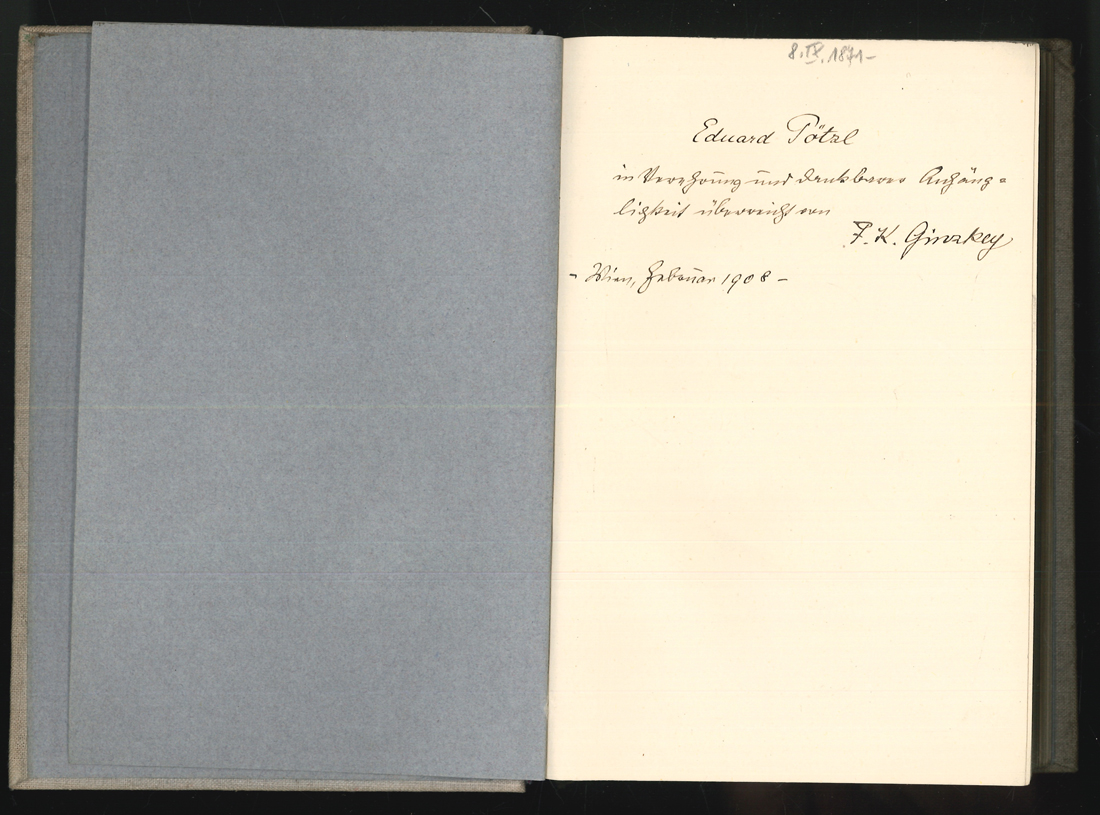 8.IX.1871-
Eduard Pötzl
in Verehrung und dankbarer Anhäng=
lichkeit überreicht von
F. K. Ginzkey
- Wien, Februar 1908 -